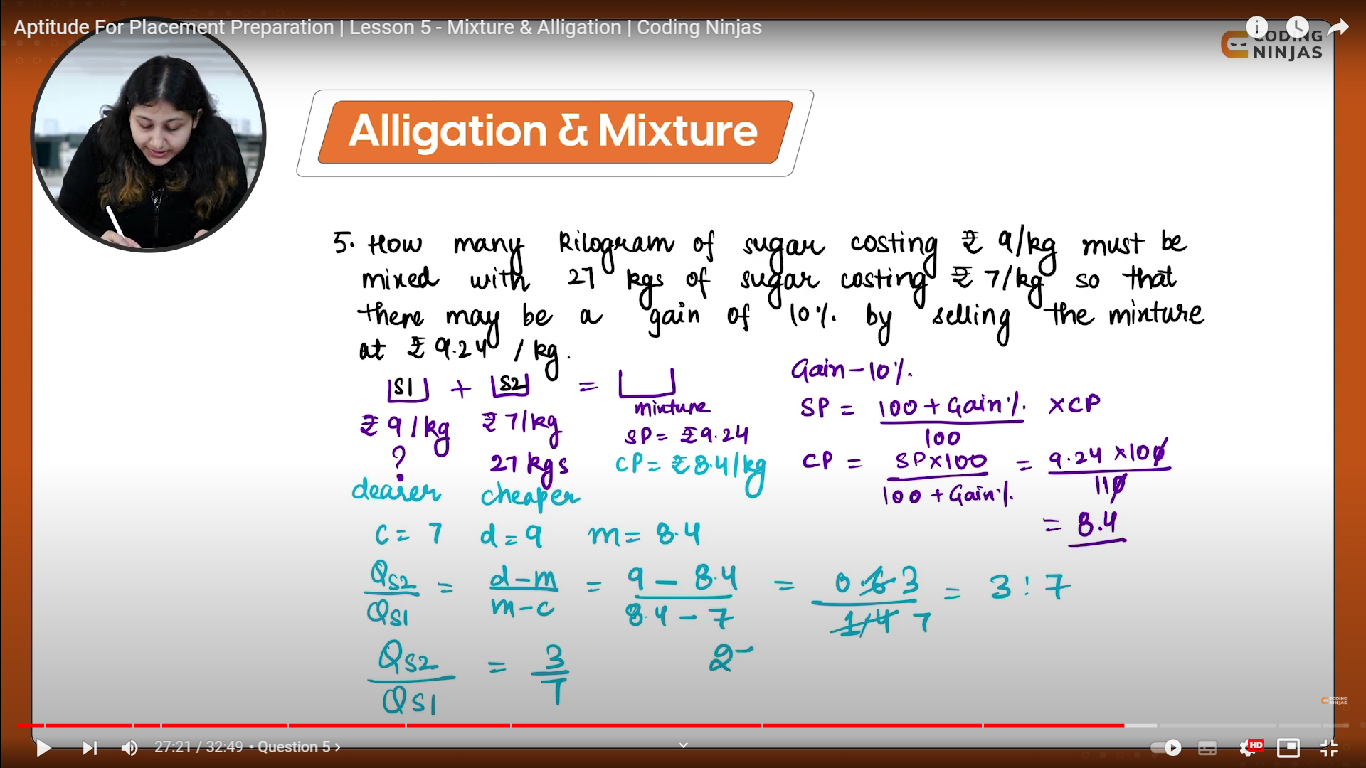 Aptitude For Placement Preparation | Lesson 5 - Mixture & Alligation | Coding Ninjas
CODING
NINJAS
Alligation & Mixture
5. How many kilogram of sugar costing ₹ 9/kg must be
mixed with 27 kgs of sugar costing ₹ 7/kg so that
there may be a gain of 10% by selling the mixture
at ₹ 9.24 /kg.
S1 + S2 =
mixture
₹ 9/kg ₹ 7/kg SP = ₹9.24
? 27 kgs CP = ₹8.4/kg
dearer cheaper
Gain - 10%.
SP = 100 + Gain% × CP
100
CP = SP×100 = 9.24 ×100
100 + Gain% 110
= 8.4
C = 7 d = 9 m = 8.4
QS2 = d-m = 9 - 8.4 = 0.6 3 = 3 : 7
QS1 m-c 8.4 - 7 1.4 7
QS2 = 3
QS1 7
2
CODING
NINJAS
27:21 / 32:49 • Question 5 >
HD